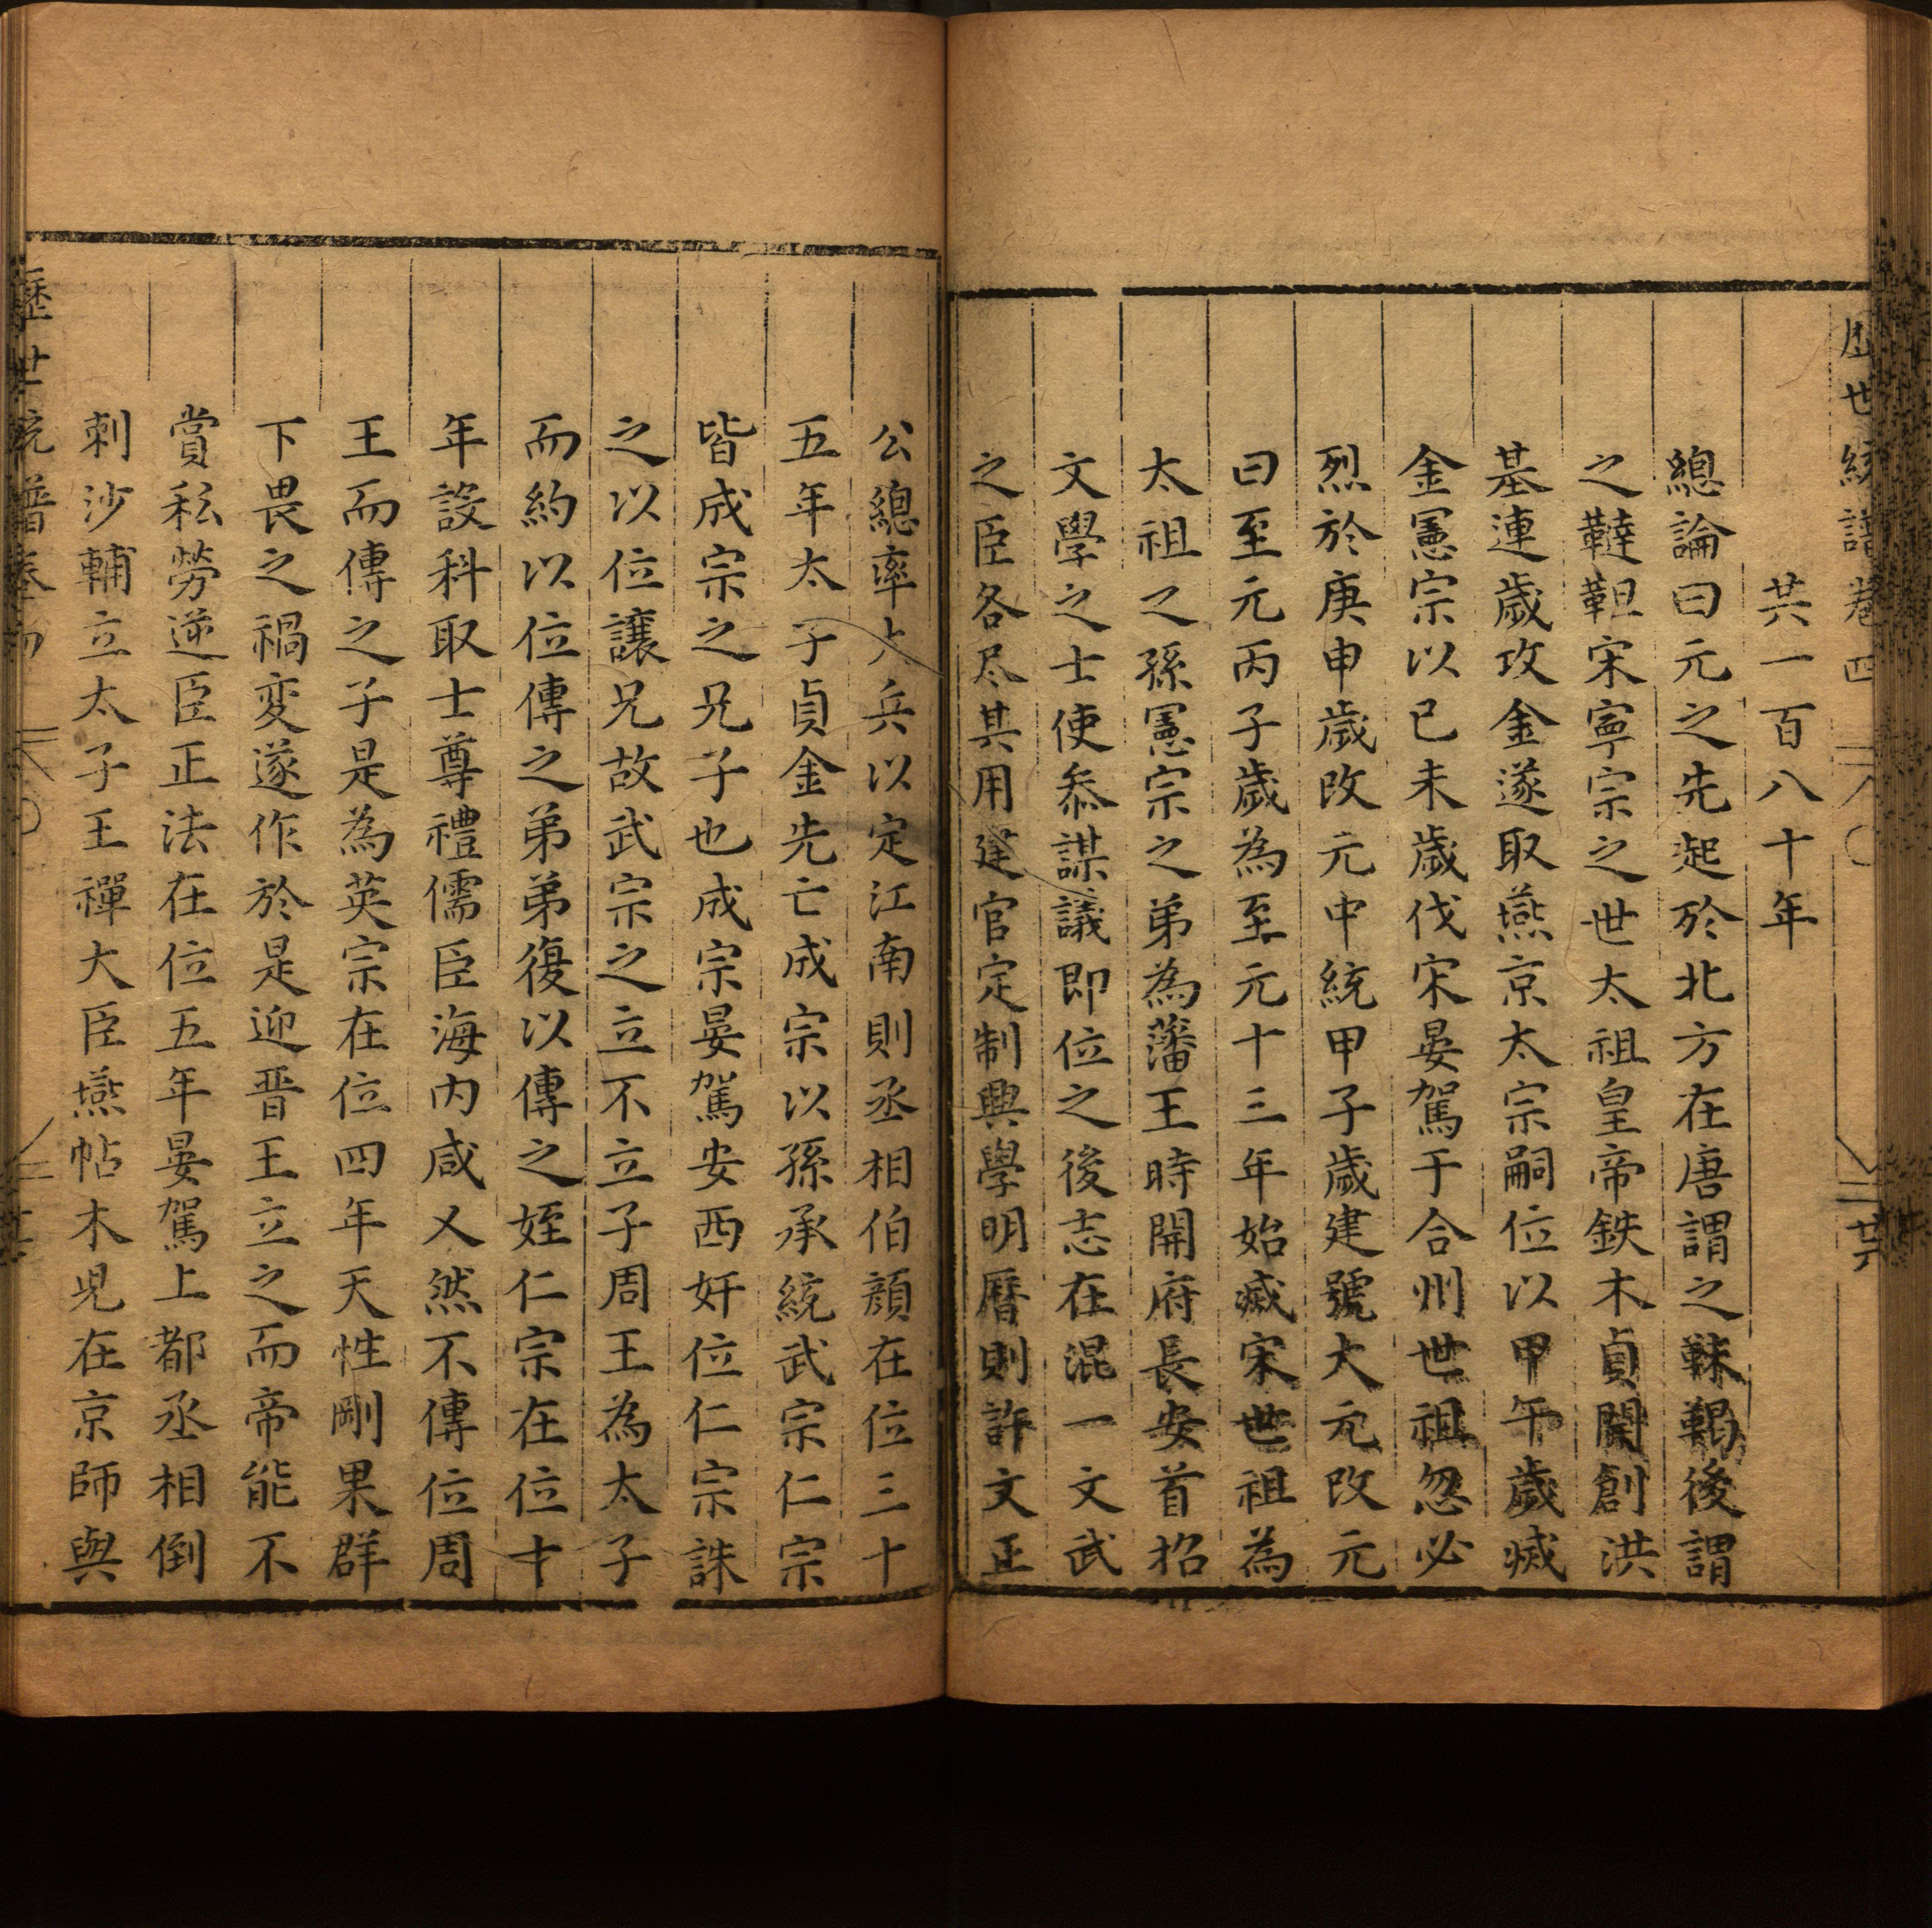 歷世統譜卷四
廿六
共一百八十年
總論曰元之先起於北方在唐謂之靺鞨後謂
之韃靼宋寧宗之世太祖皇帝鉄木貞開創洪
基連歲攻金遂取燕京太宗嗣位以甲午歲滅
金憲宗以已未歲伐宋晏駕于合州世祖忽必
烈於庚申歲改元中統甲子歲建號大元改元
曰至元丙子歲為至元十三年始滅宋世祖為
太祖之孫憲宗之弟為藩王時開府長安首招
文學之士使叅謀議即位之後志在混一文武
之臣各尽其用建官定制興學明曆則許文正
公總率大兵以定江南則丞相伯顔在位三十
五年太子貞金先亡成宗以孫承統武宗仁宗
皆成宗之兄子也成宗晏駕安西奸位仁宗誅
之以位讓兄故武宗之立不立子周王為太子
而約以位傳之弟弟復以傳之姪仁宗在位十
年設科取士尊禮儒臣海内咸乂然不傳位周
王而傳之子是為英宗在位四年天性剛果群
下畏之禍変遂作於是迎晋王立之而帝能不
賞私勞逆臣正法在位五年晏駕上都丞相倒
刺沙輔立太子王禪大臣燕帖木児在京師與
歷世統譜卷四